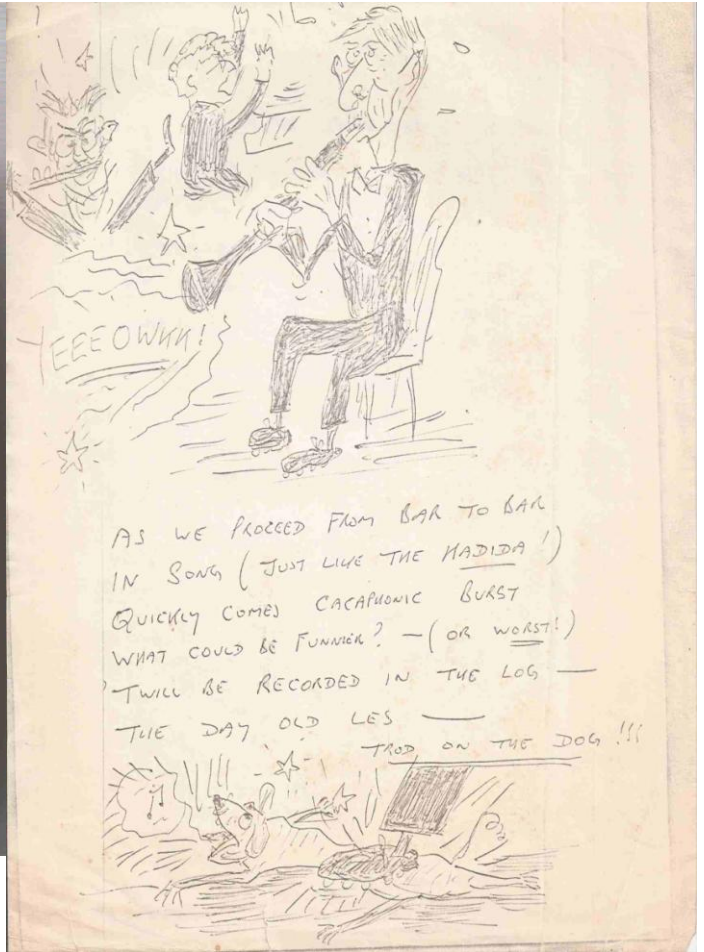 YEEEOWKK!
AS WE PROCEED FROM BAR TO BAR
IN SONG (JUST LIKE THE HADIDA!)
QUICKLY COMES CACAPHONIC BURST
WHAT COULD BE FUNNIER? — (OR WORST!)
'TWILL BE RECORDED IN THE LOG —
THE DAY OLD LES —
TROD ON THE DOG!!!